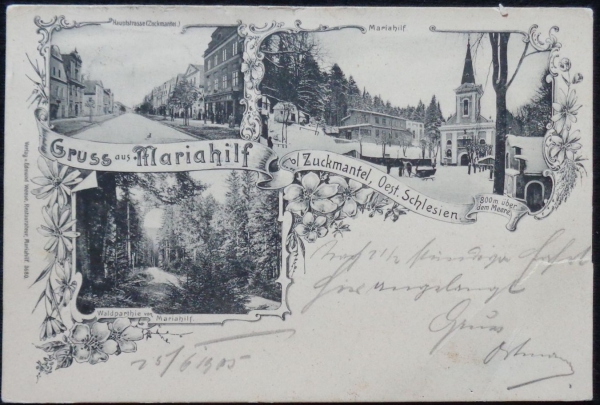 Hauptstrasse (Zuckmantel.)
Mariahilf
Gruss aus Mariahilf
Zuckmantel, Oest. Schlesien
800m über
dem Meere
Waldparthie von
Mariahilf.
Nach 2 1/2 stündiger Fahrt
hier angelangt
Gruss
25/6 1905